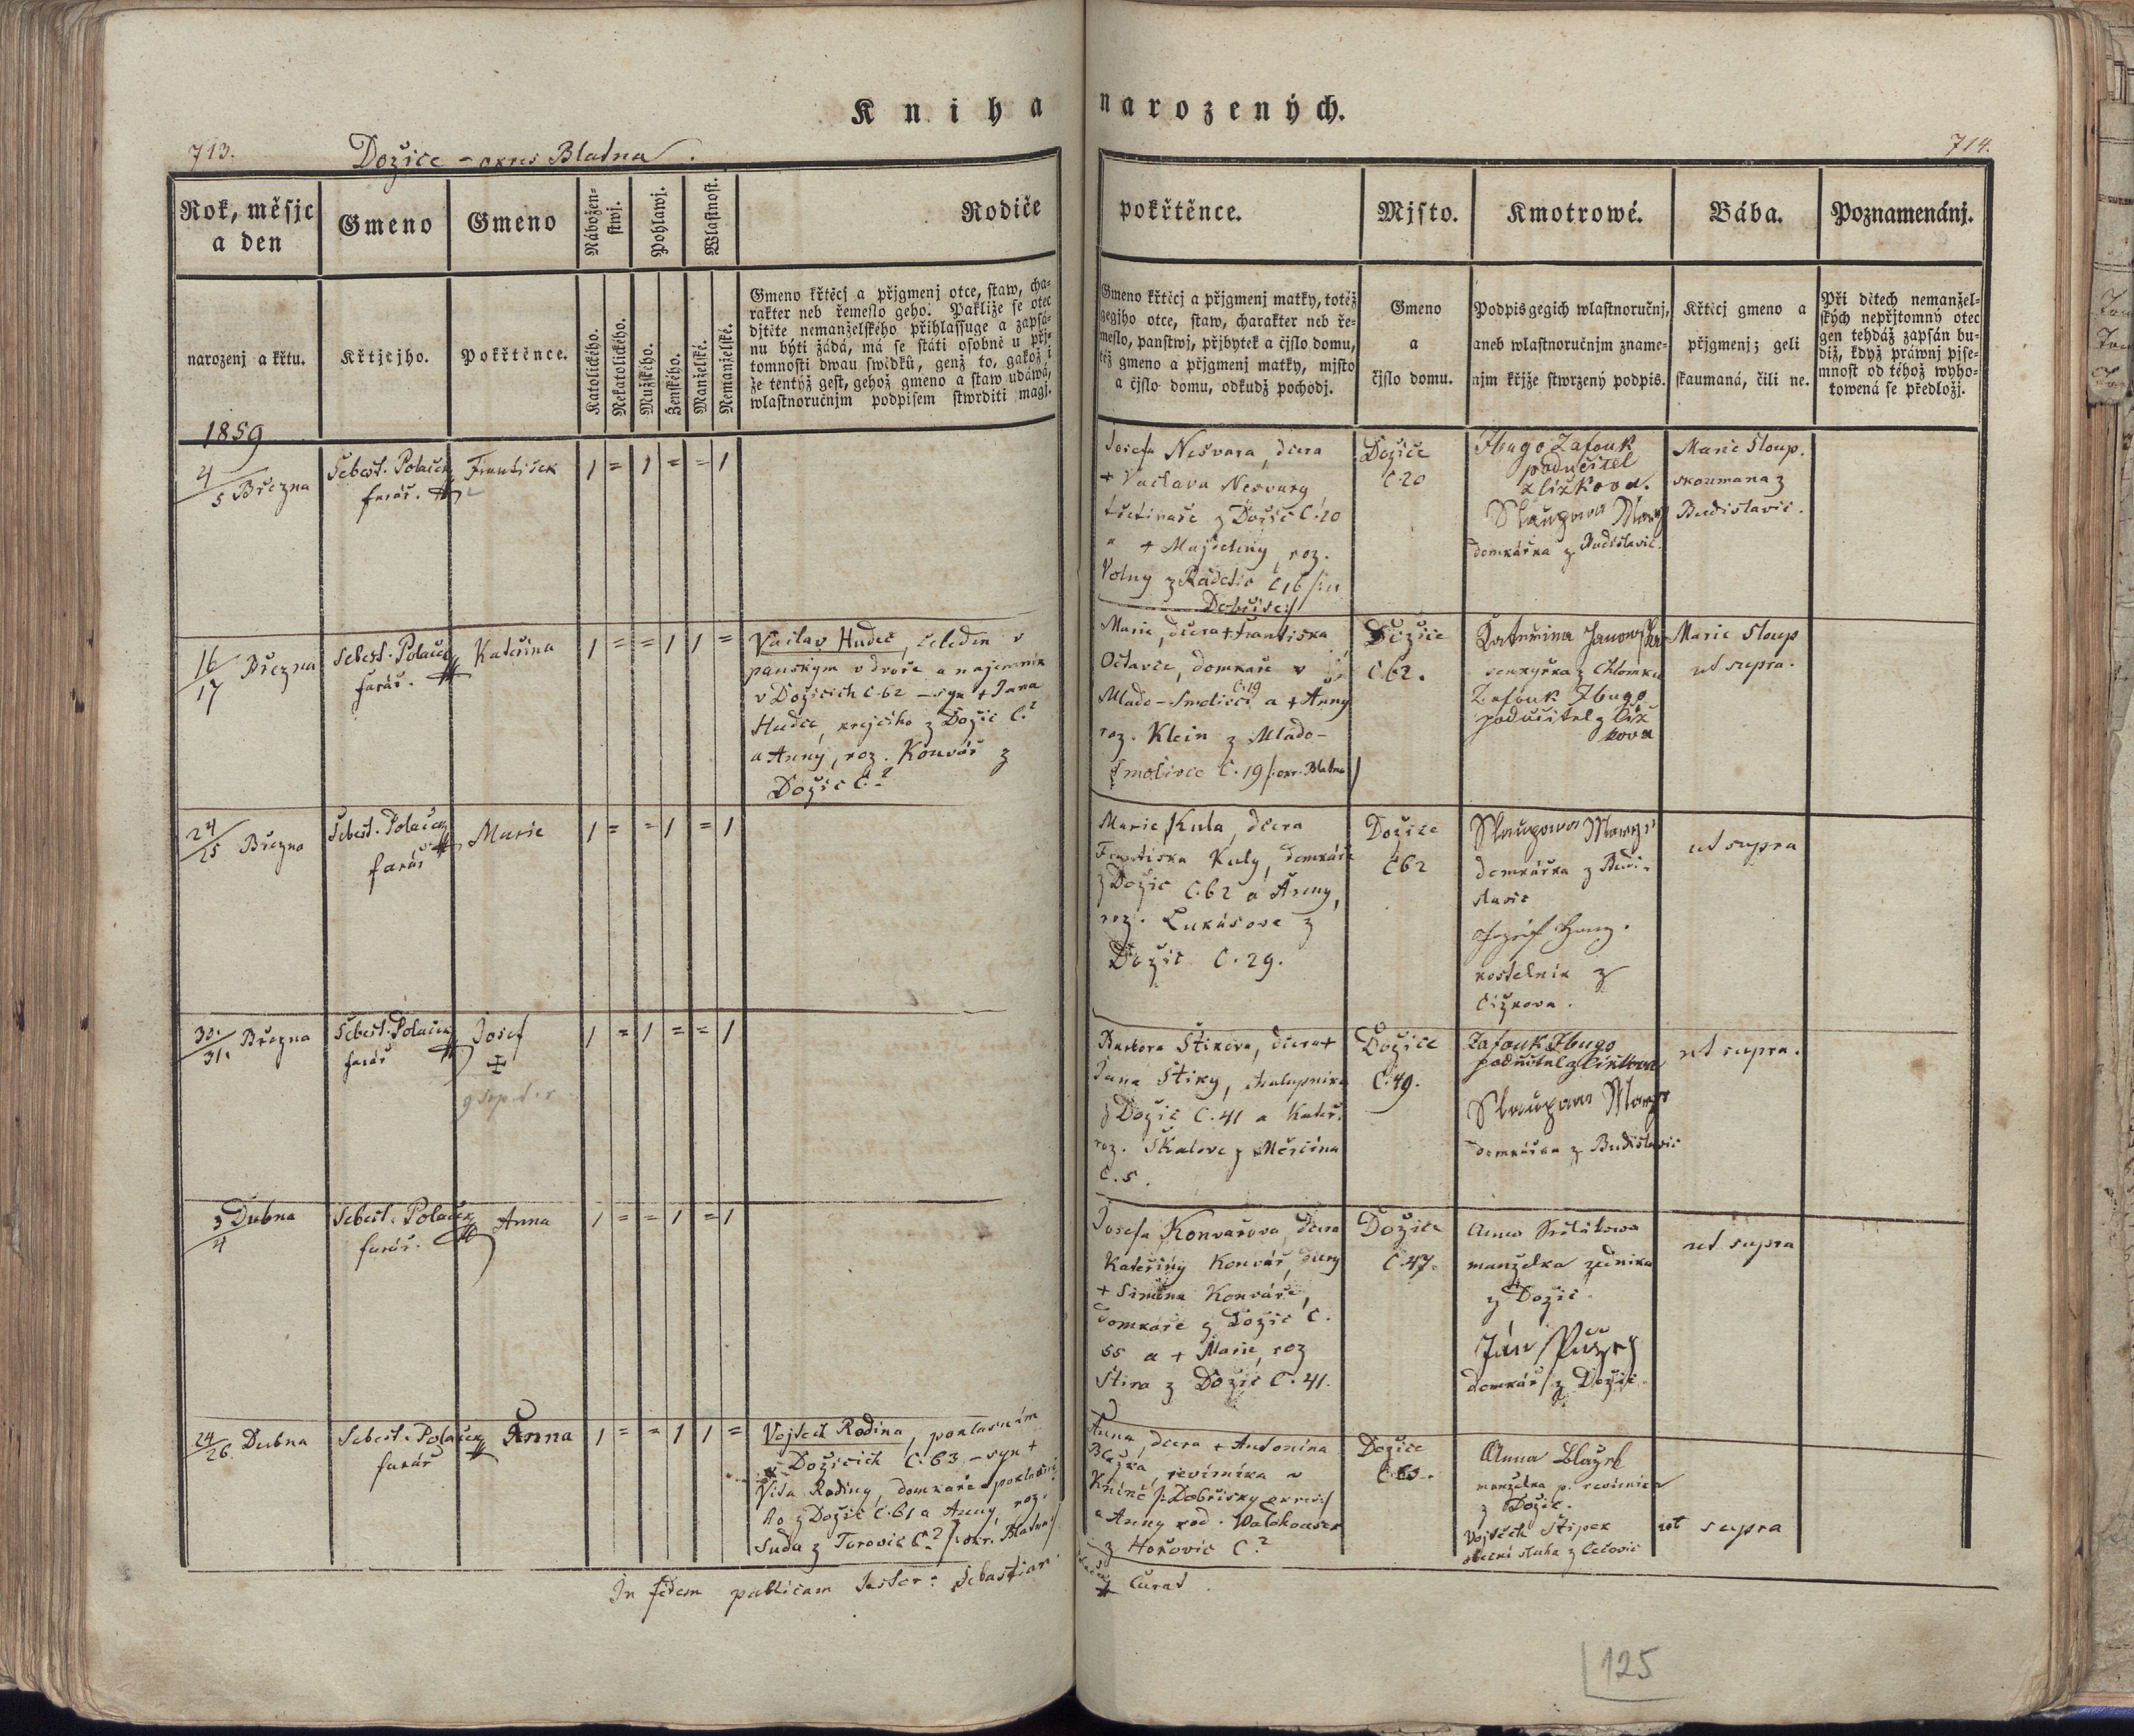 Kniha narozených.
713.
Dožice - okres Blatna.
714.
Rok, měsjc
a den
Gmeno
Gmeno
Nábožen-
stwj.
Pohlawj.
Wlastnost.
Rodiče
pokřtěnce.
Mjsto.
Kmotrowé.
Bába.
Poznamenánj.
narozenj a křtu.
Křtjcjho.
Pokřtěnce.
Katolického.
Nekatolického.
Mužského.
Ženského.
Manželské.
Nemanželské.
Gmeno křtěcj a přjgmenj otce, staw, cha-
rakter neb řemeslo geho. Pakliže se otec
djtěte nemanželského přihlassuge a zapsá-
nu býti žádá, má se státi osobně u přj-
tomnosti dwau swědků, genž to, gakož i
že tentýž gest, gehož gmeno a staw udáwá,
wlastnoručnjm podpisem stwrditi magj.
Gmeno křtěcj a přjgmenj matky, totéž
gegjho otce, staw, charakter neb ře-
meslo, panstwj, přjbytek a čjslo domu,
též gmeno a přjgmenj matky, mjsto
a čjslo domu, odkudž pocházj.
Gmeno
a
čjslo domu.
Podpis gegich wlastnoručnj,
aneb wlastnoručnjm zname-
njm křjže stwrzený podpis.
Křtěcj gmeno a
přjgmenj; geli
skaumaná, čili ne.
Při dětech nemanžel-
ských nepřjtomný otec
gen tehdáž zapsán bu-
diž, když práwnj pjse-
mnost od téhož wyho-
towená se předložj.
1859
4/5 Března
Šebest. Polaček
farář.
František
1 = 1 = = 1
Josefa Nešvara, dcera
+ Vaclava Nesvary
z Dožic C. 20
a + Majdleny, roz.
Volny z C 16
Dobřise
Dožice
C. 20
Hugo Zafouk
podučitel
z Čížkova.
Staupowa
domkářka z Budislavic.
Marie Sloup.
skoumana z
Budislavic.
16/17 Března
Šebest. Polaček
farář.
Kateřina
1 = = 1 1 =
Vaclav Hudec, čeledin v
panským v dvoře a najemnik
v Dožicich C. 62 - syn + Jana
Hudce, krejciho z Dožic C. ?
a Anny, roz. Konvář z
Dožic C. ?
Marie, dcera + Františka
domkaře v
Mlado-Smolivci C. 19 a + Anny
roz. Klein z Mlado-
Smolivce C. 19 /: okr. Blatna :/
Dožice
C. 62.
Kateřina Janowska
z Chlomku
Zafouk Hugo
podučitel z Čiž
kova
Marie Sloup
ut supra.
24/25 Března
Šebest. Polaček
farář
Marie
1 = = 1 = 1
Marie Kula, dcera
Františka Kuly, domkáře
z Dožic C. 62 a Anny,
roz. Lukášove z
Dožic C. 29.
Dožice
C 62
Staupowa
domkářka z Budi-
slavic
Joseph
kostelnik z
Čižkova.
ut supra
30/31. Března
Šebest. Polaček
farář
Josef
1 = 1 = = 1
Barbora Štikova, dcera +
Jana Štiky, chalupnika
z Dožic C. 41 a Kateř.
roz. Skalove z Měrčina
C. 5.
Dožice
C. 49.
Zafouk Hugo
podučitel z Čížkova
Staupowa
domkářka z Budislavic
ut supra.
3/4 Dubna
Šebest. Polaček
farář.
Anna
1 = = 1 = 1
Josefa Konvařova, dcera
Kateřiny Konvář, dcery
+ Simona Konváře,
domkáře z Dožic C.
55 a + Marie, roz
Stira z Dožic C. 41.
Dožice
C. 47.
Anna
manželka zednika
z Dožic.
Ján
domkář z Dožic.
ut supra
24/26 Dubna
Šebest. Polaček
farář
Anna
1 = = 1 1 =
Vojtech Rodina,
v Dožicich C. 63 - syn +
Vita Rodiny, domkáře
z Dožic C. 61 a Anny, roz.
Suda z C. ? /: okr. Blatna :/
Anna, dcera + Antonina
Blažka, revírnika v
a Anny rod.
z Hořovic C. ?
Dožice
C. 63.
Anna Blažek
manželka p. revirnika
z Dožic.
Vojtěch Štipek
obecni sluha z Čečovic
ut supra
In fidem publicam testor: Sebastian
Curat.
125